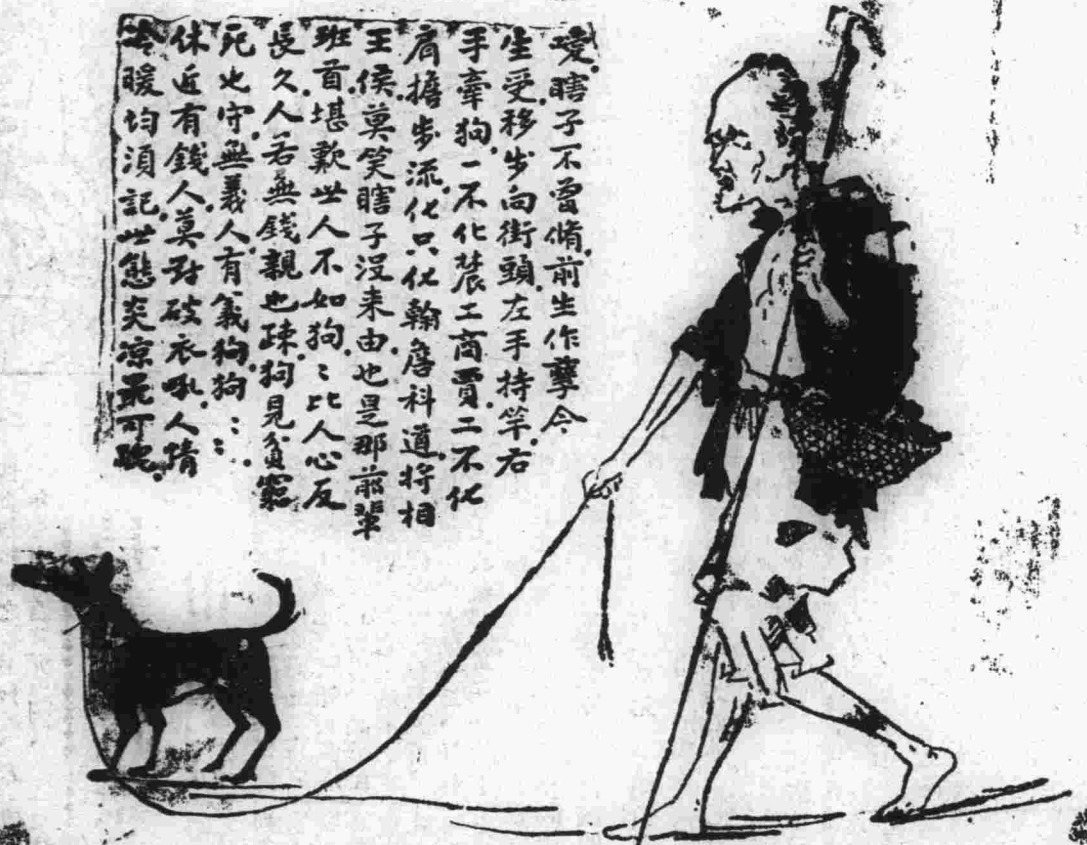 嗳瞎子不曾脩前生作孽今
生受移步向街頭左手持竿右
手牽狗一不化農工商賈二不化
肩擔步流化只化翰詹科道将相
王侯莫笑瞎子没来由也是那前輩
班首堪歎世人不如狗〻比人心反
長久人若無錢親也疎狗見貧窮
死也守無義人有義狗狗
休近有錢人莫對破衣吼人情
冷暖均須記世態炎凉最可